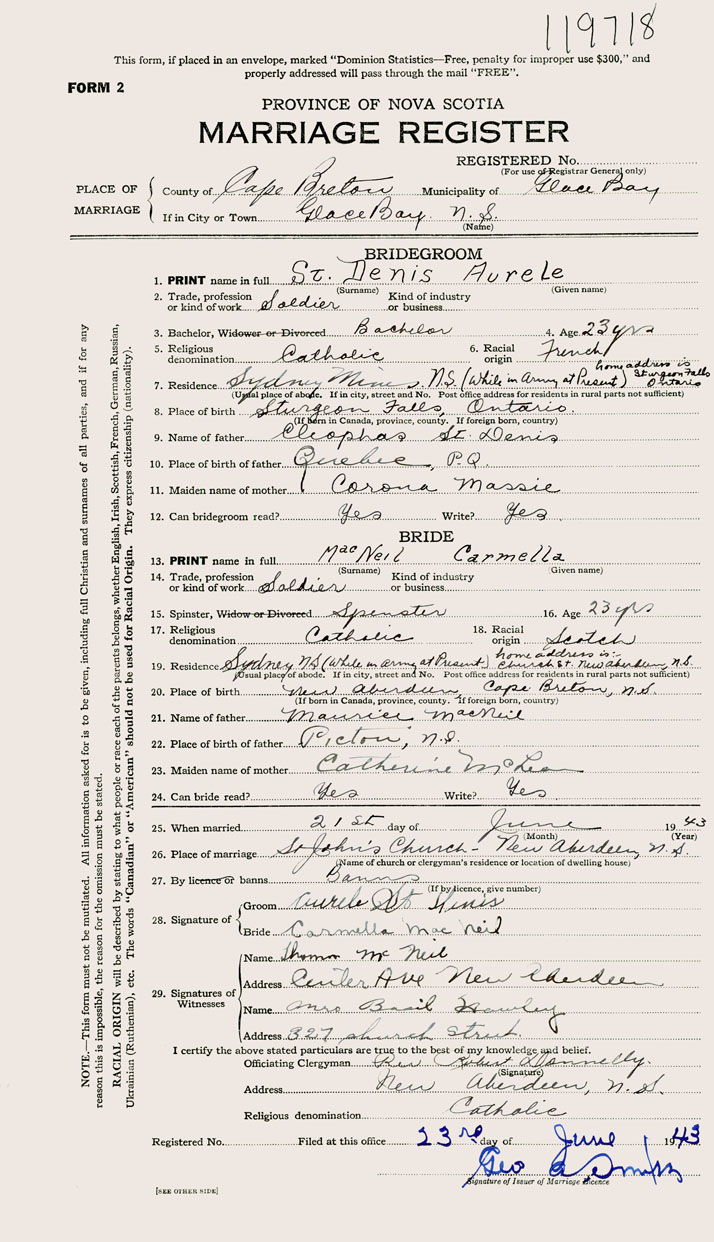 119718
This form, if placed in an envelope, marked "Dominion Statistics—Free, penalty for improper use $300," and
properly addressed will pass through the mail "FREE".
FORM 2
PROVINCE OF NOVA SCOTIA
MARRIAGE REGISTER
REGISTERED No.
(For use of Registrar General only)
PLACE OF MARRIAGE
County of Cape Breton Municipality of Glace Bay
If in City or Town Glace Bay N.S.
(Name)
BRIDEGROOM
1. PRINT name in full St. Denis Aurele
(Surname) (Given name)
2. Trade, profession or kind of work Soldier Kind of industry or business
3. Bachelor, Widower or Divorced Bachelor 4. Age 23 yrs
5. Religious denomination Catholic 6. Racial origin French
7. Residence Sydney Mines, N.S. (While in Army at Present) home address is Sturgeon Falls Ontario
(Usual place of abode. If in city, street and No. Post office address for residents in rural parts not sufficient)
8. Place of birth Sturgeon Falls, Ontario.
(If born in Canada, province, county. If foreign born, country)
9. Name of father Cleophas St. Denis
10. Place of birth of father Quebec, P.Q.
11. Maiden name of mother Corona Massie
12. Can bridegroom read? Yes Write? Yes
BRIDE
13. PRINT name in full MacNeil Carmella
(Surname) (Given name)
14. Trade, profession or kind of work Soldier Kind of industry or business
15. Spinster, Widow or Divorced Spinster 16. Age 23 yrs
17. Religious denomination Catholic 18. Racial origin Scotch
19. Residence Sydney N.S (While in army at Present) home address is:- Church St. New Aberdeen, N.S.
(Usual place of abode. If in city, street and No. Post office address for residents in rural parts not sufficient)
20. Place of birth New Aberdeen, Cape Breton, N.S.
(If born in Canada, province, county. If foreign born, country)
21. Name of father Maurice MacNeil
22. Place of birth of father Pictou, N.S.
23. Maiden name of mother Catherine McLean
24. Can bride read? Yes Write? Yes
25. When married 21st day of June 1943
(Month) (Year)
26. Place of marriage St John's Church - New Aberdeen, N.S.
(Name of church or clergyman's residence or location of dwelling house)
27. By licence or banns Banns
(If by licence, give number)
28. Signature of Groom Aurele St Denis
Bride Carmella Mac Neil
29. Signatures of Witnesses
Name Thomas Mc Neil
Address Center Ave New Aberdeen
Name Mrs Basil
Address 327 Church Street
I certify the above stated particulars are true to the best of my knowledge and belief.
Officiating Clergyman Rev Robert Donnelly.
(Signature)
Address New Aberdeen, N.S.
Religious denomination Catholic
Registered No. Filed at this office 23rd day of June 1943
Geo
Signature of Issuer of Marriage Licence
[SEE OTHER SIDE]
NOTE.—This form must not be mutilated. All information asked for is to be given, including full Christian and surnames of all parties, and if for any
reason this is impossible, the reason for the omission must be stated.
RACIAL ORIGIN will be described by stating to what people or race each of the parents belongs, whether English, Irish, Scottish, French, German, Russian,
Ukrainian (Ruthenian), etc. The words "Canadian" or "American" should not be used for Racial Origin. They express citizenship (nationality).